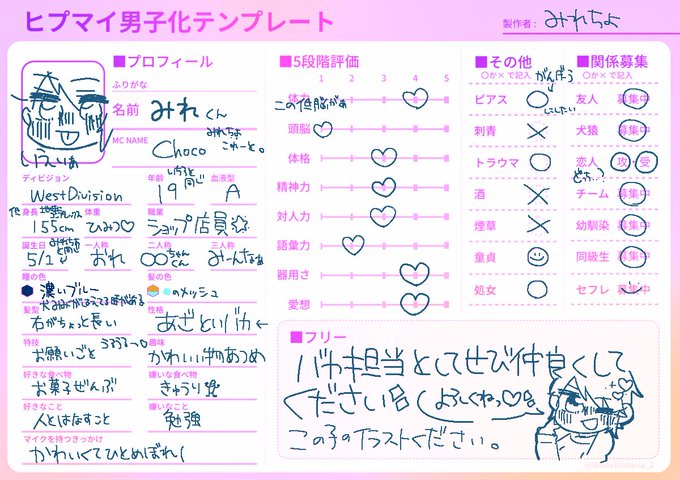 ヒプマイ男子化テンプレート
製作者: みれちょ
■プロフィール
ふりがな
名前 みれくん
MC NAME Choco
みれちょ
ディビジョン WestDivision
年齢 19
血液型 A
身長 155cm
体重 ひみつ♡
職業 ショップ店員
誕生日 5/12
一人称 おれ
二人称 〇〇ちゃん くん
三人称 みーんなぁ
瞳の色 濃いブルー
髪の色 のメッシュ
髪型 右がちょっと長い
性格 あざといバカ←
特技 お願いごと
趣味 かわいい物あつめ
好きな食べ物 お菓子ぜんぶ
嫌いな食べ物 きゅうり
好きなこと 人とはなすこと
嫌いなこと 勉強
マイクを持つきっかけ
かわいくてひとめぼれ!
■5段階評価
1 2 3 4 5
体力
頭脳
体格
精神力
対人力
語彙力
器用さ
愛想
■その他
〇か×で記入
がんぼう
ピアス
刺青
トラウマ
酒
煙草
童貞
処女
■関係募集
〇か×で記入
友人 募集中
犬猿 募集中
恋人 攻・受
どっち…?
チーム 募集中
幼馴染 募集中
同級生 募集中
セフレ 募集中
■フリー
バカ担当としてぜひ仲良くして
ください
よろしくねっ♡
この子のイラストください。